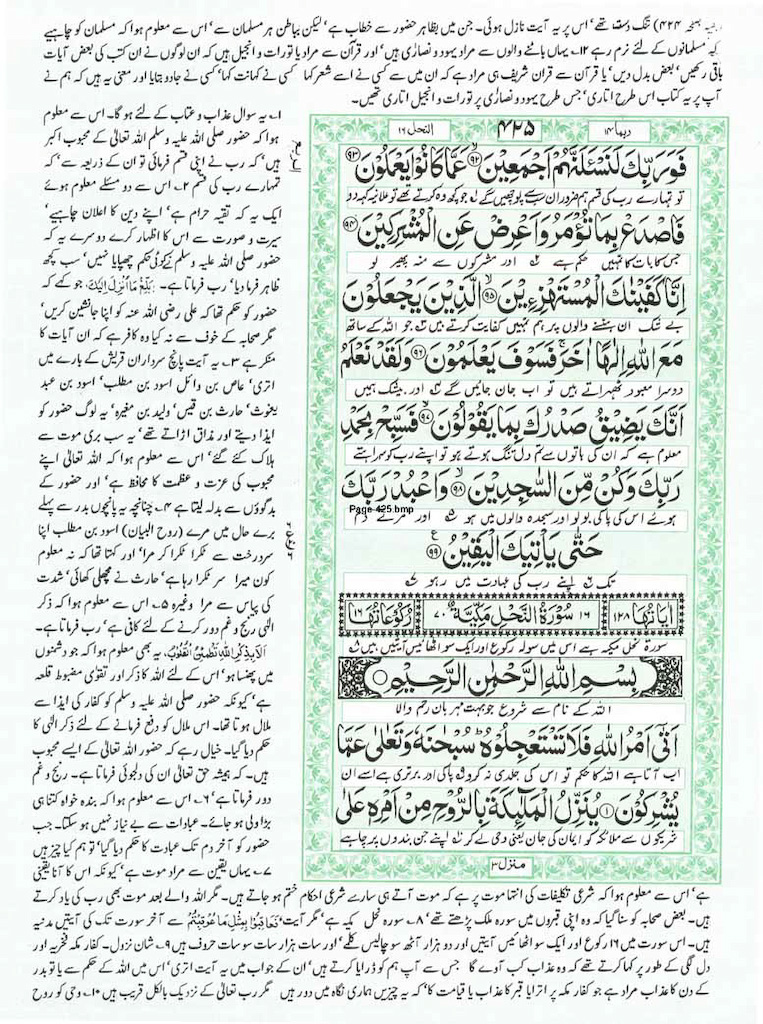 تنگ دستھا تھے‘ اس پر یہ آیت نازل ہوئی۔ جن میں بظاہر حضور سے خطاب ہے‘ لیکن بباطن ہر مسلمان سے‘ اس سے معلوم ہوا کہ مسلمان کو چاہیے
کہ مسلمانوں کے لئے نرم رہے ۱۲۔ یہاں بانٹنے والوں سے مراد یہود و نصاریٰ ہیں‘ اور قرآن سے مراد یا تورات و انجیل ہیں کہ ان لوگوں نے ان کتب کی بعض آیات
باقی رکھیں‘ بعض بدل دیں‘ یا قرآن سے قران شریف ہی مراد ہے کہ ان میں سے کسی نے اسے شعر کہا کسی نے کہانت کہا‘ کسی نے جادو بتایا اور معنی یہ ہیں کہ ہم نے
آپ پر یہ کتاب اس طرح اتاری‘ جس طرح یہود و نصاریٰ پر تورات و انجیل اتاری تھیں۔
ربما ۱۴
۴۲۵
النحل ۱۶
فَوَرَبِّكَ لَنَسْـَٔلَنَّهُمْ اَجْمَعِيْنَ ۹۲ عَمَّا كَانُوْا يَعْمَلُوْنَ ۹۳
تو تمہارے رب کی قسم ہم ضرور ان سب سے پوچھیں گے جو کچھ وہ کرتے تھے تو علانیہ کہہ دو
فَاصْدَعْ بِمَا تُؤْمَرُ وَاَعْرِضْ عَنِ الْمُشْرِكِيْنَ ۹۴
جس کا بات کا تمہیں حکم ہے اور مشرکوں سے منہ پھیر لو
اِنَّا كَفَيْنٰكَ الْمُسْتَهْزِءِيْنَ ۹۵ الَّذِيْنَ يَجْعَلُوْنَ
بے شک ان ہنسنے والوں پر ہم تمہیں کفایت کرتے ہیں جو اللہ کے ساتھ
مَعَ اللّٰهِ اِلٰهًا اٰخَرَ فَسَوْفَ يَعْلَمُوْنَ ۹۶ وَلَقَدْ نَعْلَمُ
دوسرا معبود ٹھہراتے ہیں تو اب جان جائیں گے اور بیشک ہمیں
اَنَّكَ يَضِيْقُ صَدْرُكَ بِمَا يَقُوْلُوْنَ ۹۷ فَسَبِّحْ بِحَمْدِ
معلوم ہے کہ ان کی باتوں سے تم دل تنگ ہوتے ہو تو اپنے رب کو سراہتے
رَبِّكَ وَكُنْ مِّنَ السّٰجِدِيْنَ ۹۸ وَاعْبُدْ رَبَّكَ
Page 425.bmp
ہوئے اس کی پاکی بولو اور سجدہ والوں میں ہو اور مرتے دم
حَتّٰى يَاْتِيَكَ الْيَقِيْنُ ۹۹
تک اپنے رب کی عبادت میں رہو
اٰيَاتُهَا ۱۲۸
۱۶ سُوْرَةُ النَّحْلِ مَكِّيَّةٌ ۷۰
رُكُوْعَاتُهَا ۱۶
سورۃ نحل مکیہ ہے اس میں سولہ رکوع اور ایک سو اٹھائیس آیتیں ہیں
بِسْمِ اللّٰهِ الرَّحْمٰنِ الرَّحِيْمِ
اللہ کے نام سے شروع جو بہت مہربان رحم والا
اَتٰۤى اَمْرُ اللّٰهِ فَلَا تَسْتَعْجِلُوْهُ سُبْحٰنَهٗ وَتَعٰلٰى عَمَّا
اب آتا ہے اللہ کا حکم تو اس کی جلدی نہ کرو پاکی اور برتری ہے اسے ان
يُشْرِكُوْنَ ۱ يُنَزِّلُ الْمَلٰٓئِكَةَ بِالرُّوْحِ مِنْ اَمْرِهٖ عَلٰى
شریکوں سے ملائکہ کو ایمان کی جان یعنی وحی لے کر اپنے جن بندوں پر چاہے
منزل ۳
۱۔ یہ سوال عذاب و عتاب کے لئے ہو گا۔ اس سے معلوم
ہوا کہ حضور صلی اللہ علیہ وسلم اللہ تعالیٰ کے محبوب اکبر
ہیں‘ کہ رب نے اپنی قسم فرمائی تو ان کے ذریعہ سے‘ کہ
تمہارے رب کی قسم ۲۔ اس سے دو مسئلے معلوم ہوئے
ایک یہ کہ تقیہ حرام ہے‘ اپنے دین کا اعلان چاہیے‘
سیرت و صورت سے اس کا اظہار کرے دوسرے یہ کہ
حضور صلی اللہ علیہ وسلم نے کوئی حکم چھپایا نہیں‘ سب کچھ
ظاہر فرما دیا‘ رب فرماتا ہے۔ بَلِّغْ مَا اُنْزِلَ اِلَيْكَ۔ جو کہے کہ
حضور کو حکم تھا کہ علی رضی اللہ عنہ کو اپنا جانشین کریں‘
مگر صحابہ کے خوف سے نہ کیا وہ کافر ہے کہ ان آیات کا
منکر ہے ۳۔ یہ آیت پانچ سرداران قریش کے بارے میں
اتری‘ عاص بن وائل اسود بن مطلب‘ اسود بن عبد
یغوث‘ حارث بن قیس‘ ولید بن مغیرہ‘ یہ لوگ حضور کو
ایذا دیتے اور مذاق اڑاتے تھے‘ یہ سب بری موت سے
ہلاک کئے گئے‘ اس سے معلوم ہوا کہ اللہ تعالیٰ اپنے
محبوب کی عزت و عظمت کا محافظ ہے‘ اور حضور کے
بدگوؤں سے بدلہ لیتا ہے ۴۔ چنانچہ یہ پانچوں بدر سے پہلے
برے حال میں مرے (روح البیان) اسود بن مطلب اپنا
سر درخت سے ٹکرا ٹکرا کر مرا‘ اور کہتا تھا کہ نہ معلوم
کون میرا سر ٹکرا رہا ہے‘ حارث نے مچھلی کھائی‘ شدت
کی پیاس سے مرا وغیرہ ۵۔ اس سے معلوم ہوا کہ ذکر
الٰہی رنج و غم دور کرنے کے لئے کافی ہے‘ رب فرماتا ہے۔
اَلَا بِذِكْرِ اللّٰهِ تَطْمَئِنُّ الْقُلُوْبُ۔ یہ بھی معلوم ہوا کہ جو دشمنوں
میں پھنسا ہو‘ اس کے لئے اللہ کا ذکر اور تقویٰ مضبوط قلعہ
ہے‘ کیونکہ حضور صلی اللہ علیہ وسلم کو کفار کی ایذا سے
ملال ہوتا تھا۔ اس ملال کو دفع فرمانے کے لئے ذکر الٰہی کا
حکم دیا گیا۔ خیال رہے کہ حضور اللہ تعالیٰ کے ایسے محبوب
ہیں۔ کہ ہمیشہ حق تعالیٰ ان کی دلجوئی فرماتا ہے۔ رنج و غم
دور فرماتا ہے‘ ۶۔ اس سے معلوم ہوا کہ بندہ خواہ کتنا ہی
بڑا ولی ہو جائے۔ عبادات سے بے نیاز نہیں ہو سکتا۔ جب
حضور کو آخر دم تک عبادت کا حکم دیا گیا‘ تو ہم کیا چیز ہیں
۷۔ یہاں یقین سے مراد موت ہے‘ کیونکہ اس کا آنا یقینی
ہے‘ اس سے معلوم ہوا کہ شرعی تکلیفات کی انتہا موت پر ہے کہ موت آتے ہی سارے شرعی احکام ختم ہو جاتے ہیں۔ مگر اللہ والے بعد موت بھی رب کی یاد کرتے
ہیں۔ بعض صحابہ کو سنا گیا کہ وہ اپنی قبروں میں سورہ ملک پڑھتے تھے‘ ۸۔ سورہ نحل مکیہ ہے‘ مگر آیت‘ فَعَاقِبُوْا بِمِثْلِ مَا عُوْقِبْتُمْ سے آخر سورت تک کی آیتیں مدنیہ
ہیں۔ اس سورت میں ۱۶ رکوع اور ایک سو اٹھائیس آیتیں اور دو ہزار آٹھ سو چالیس کلمے‘ اور سات ہزار سات سو سات حروف ہیں ۹۔ شان نزول۔ کفار مکہ فخریہ اور
دل لگی کے طور پر کہا کرتے تھے کہ وہ عذاب کب آوے گا جس سے آپ ہم کو ڈرایا کرتے ہیں‘ ان کے جواب میں یہ آیت اتری‘ اس میں اللہ کے حکم سے یا تو بدر
کے دن کا عذاب مراد ہے جو کفار مکہ پر اترا یا قبر کا عذاب یا قیامت کا‘ کہ یہ چیزیں ہماری نگاہ میں دور ہیں مگر رب تعالیٰ کے نزدیک بالکل قریب ہیں ۱۰۔ وحی کو روح